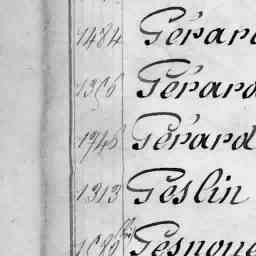 1484 Gérard
Gérard
1946 Gérard
1313 Geslin
Gesnoue